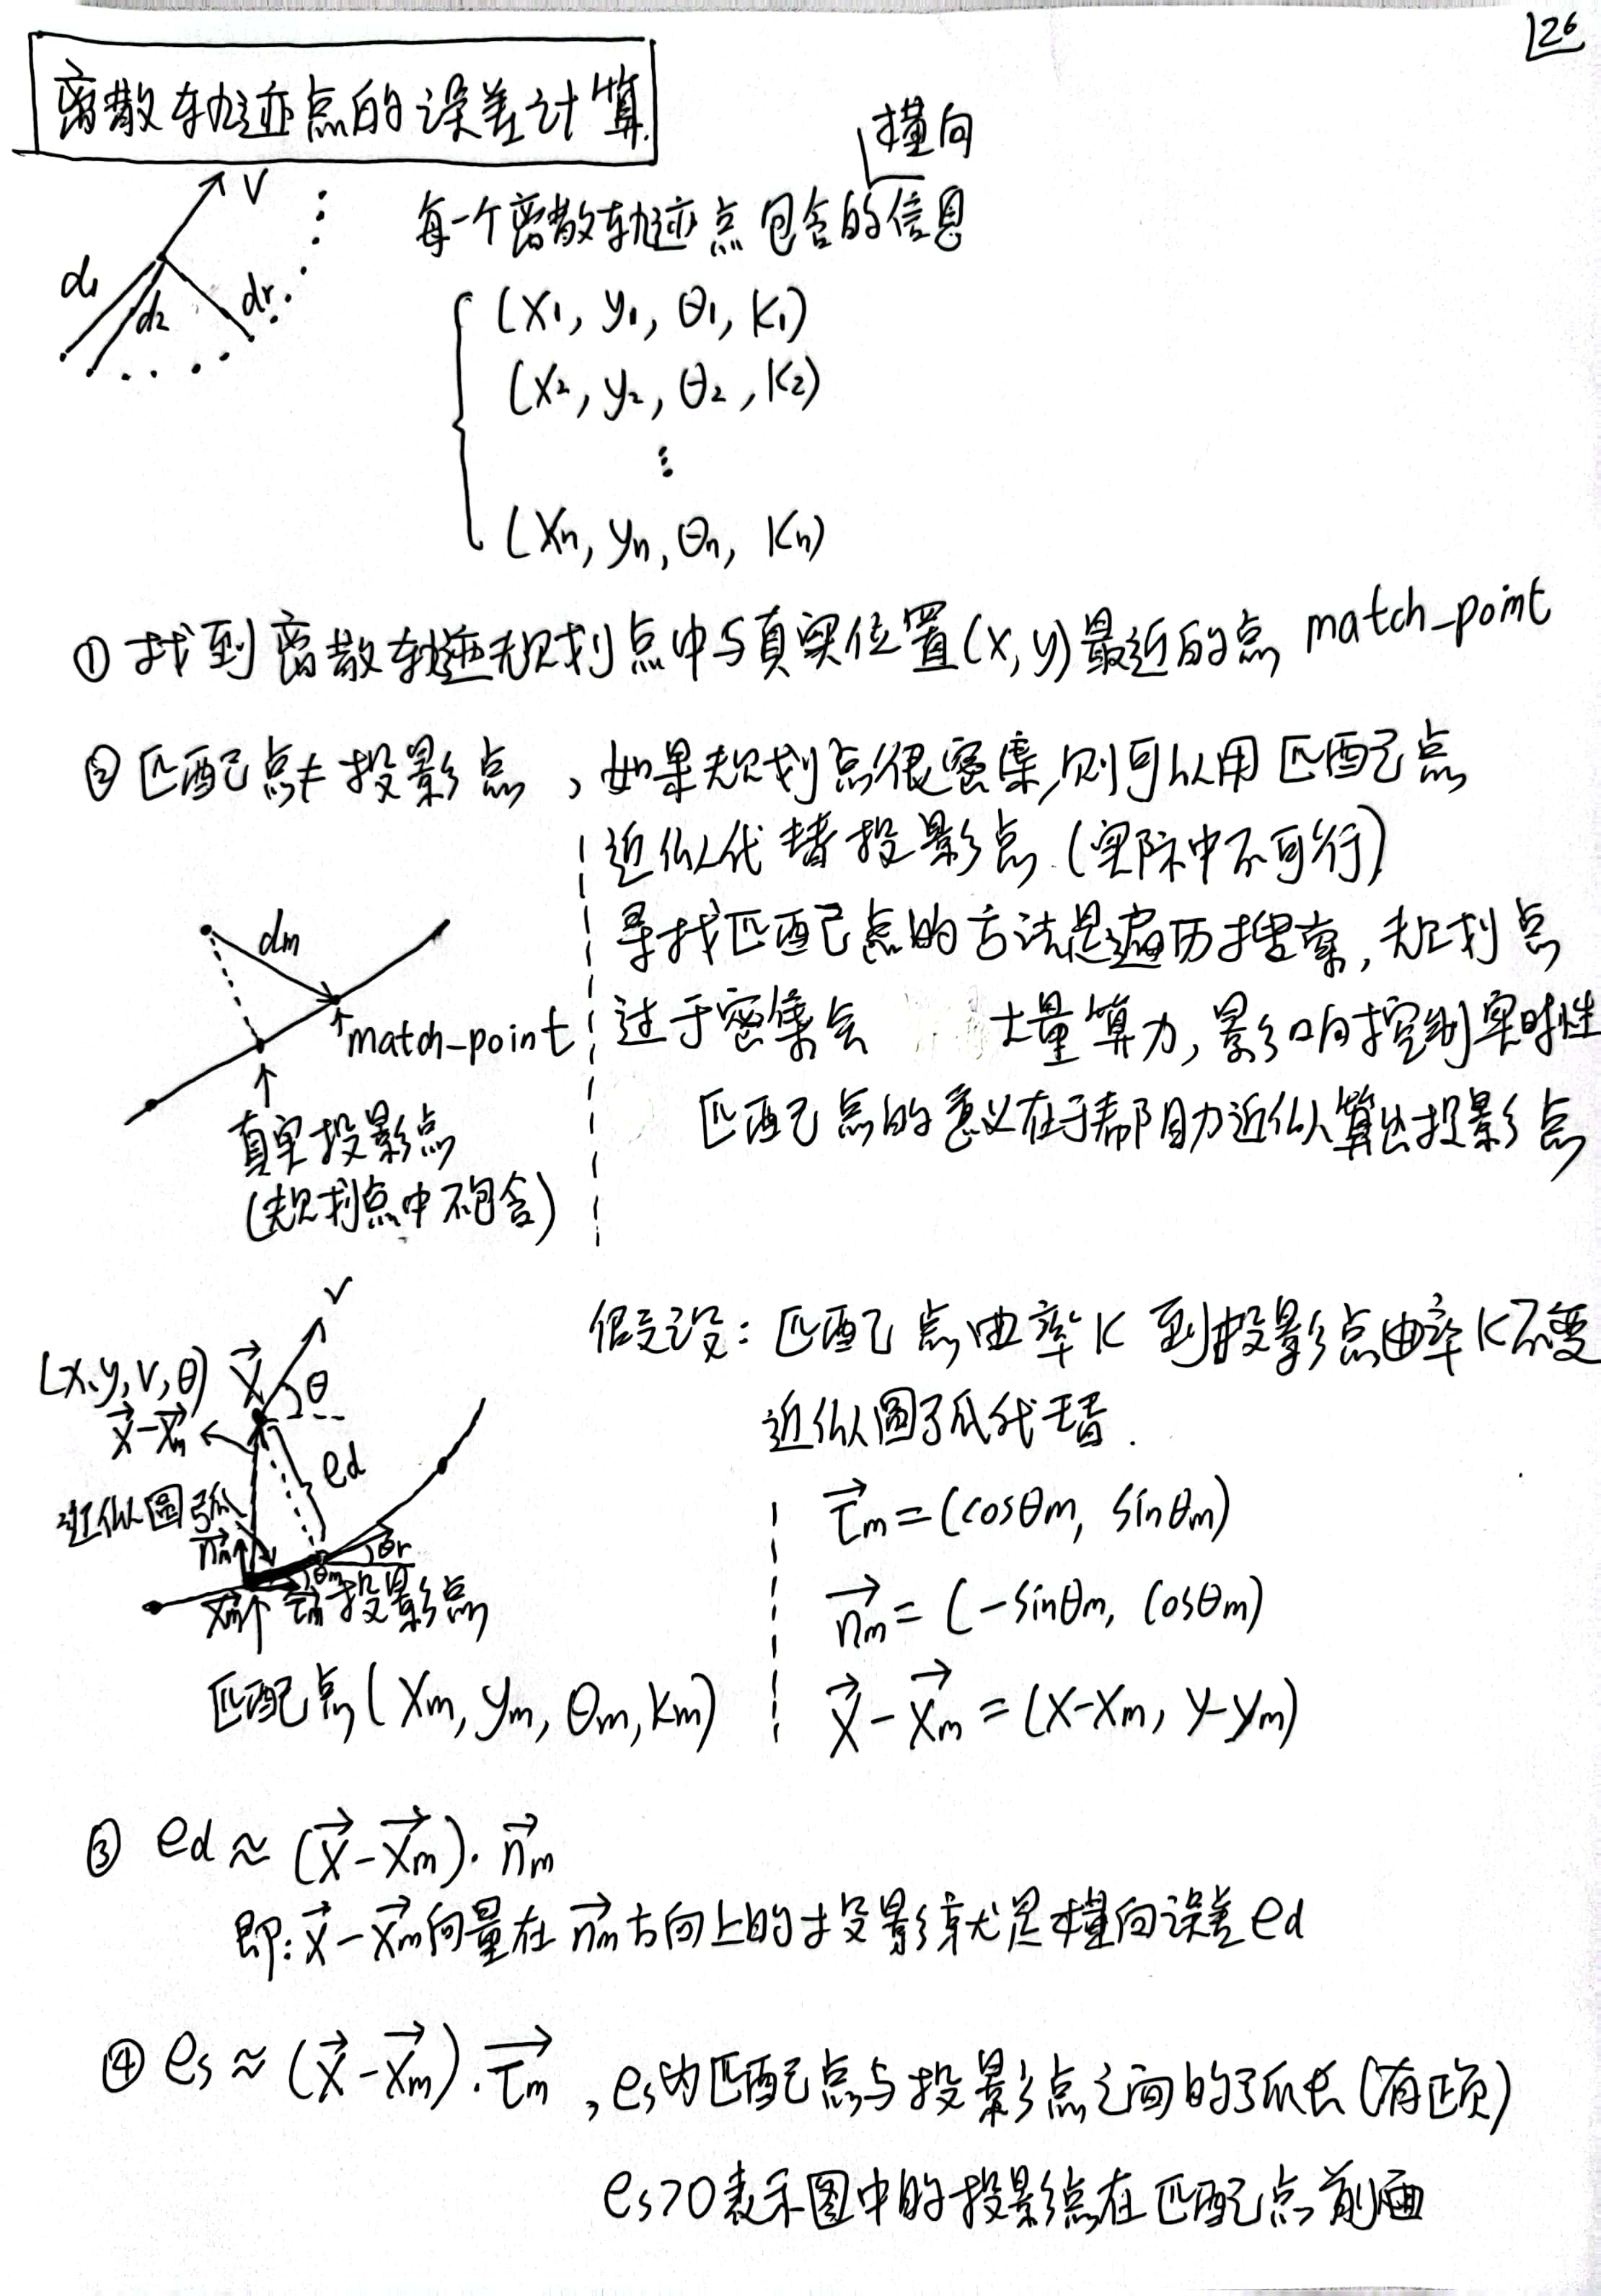 26
离散轨迹点的误差计算
横向
每一个离散轨迹点包含的信息
V
d₁
d₂
dr
(x₁, y₁, θ₁, k₁)
(x₂, y₂, θ₂, k₂)
⋮
(xₙ, yₙ, θₙ, kₙ)
① 找到离散轨迹规划点中与真实位置(x, y)最近的点 match_point
② 匹配点≠投影点，如果规划点很密集，则可以用匹配点
近似代替投影点.(实际中不可行)
寻找匹配点的方法是遍历搜索，规划点
过于密集会 大量算力，影响控制实时性
匹配点的意义在于帮助近似算出投影点
dm
match_point
真实投影点
(规划点中不包含)
假设：匹配点曲率k 到投影点曲率k不变
近似圆弧代替.
V
(x, y, v, θ) x⃗
θ
x⃗-x⃗m
ed
近似圆弧
n⃗m
θr
θm
x⃗m τ⃗m 投影点
匹配点(xm, ym, θm, km)
τ⃗m=(cosθm, sinθm)
n⃗m=(-sinθm, cosθm)
x⃗-x⃗m=(x-xm, y-ym)
③ ed≈(x⃗-x⃗m)·n⃗m
即：x⃗-x⃗m向量在n⃗m方向上的投影就是横向误差ed
④ es≈(x⃗-x⃗m)·τ⃗m，es为匹配点与投影点之间的弧长(有正负)
es>0表示图中的投影点在匹配点前面